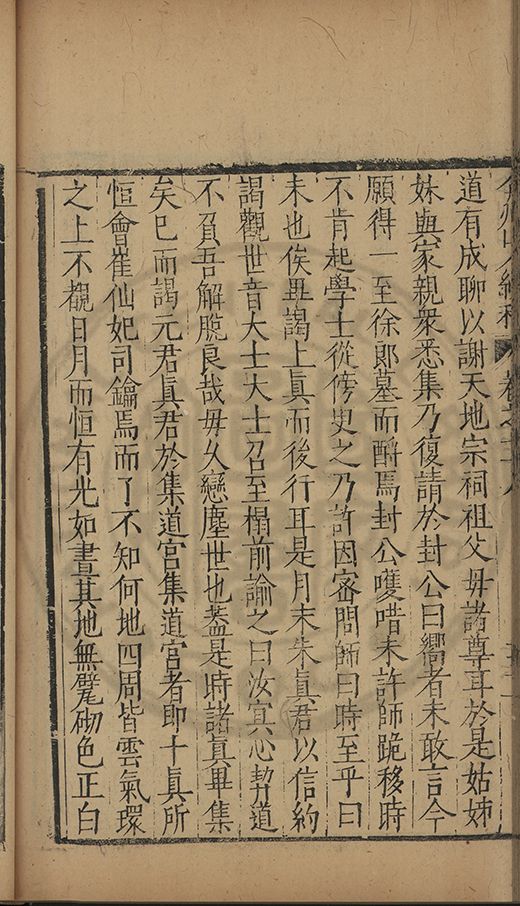 道有成聊以謝天地宗祠祖父母諸尊耳於是姑姊
妹與家親衆悉集乃復請於封公曰嚮者未敢言今
願得一至徐郞墓而酹焉封公嚄唶未許師跪移時
不肯起學士從傍㬰之乃許因密問師曰時至乎曰
未也俟畢謁上眞而後行耳是月末朱眞君以信約
謁觀世音大士大士召至榻前諭之曰汝冥心契道
不負吾解脫良哉毋久戀塵世也葢是時諸眞畢集
矣巳而謁元君眞君於集道宮集道宮者卽十眞所
恒會崔仙妃司鑰焉而了不知何地四周皆雲氣環
之上不覩日月而恒有光如晝其地無甓砌色正白